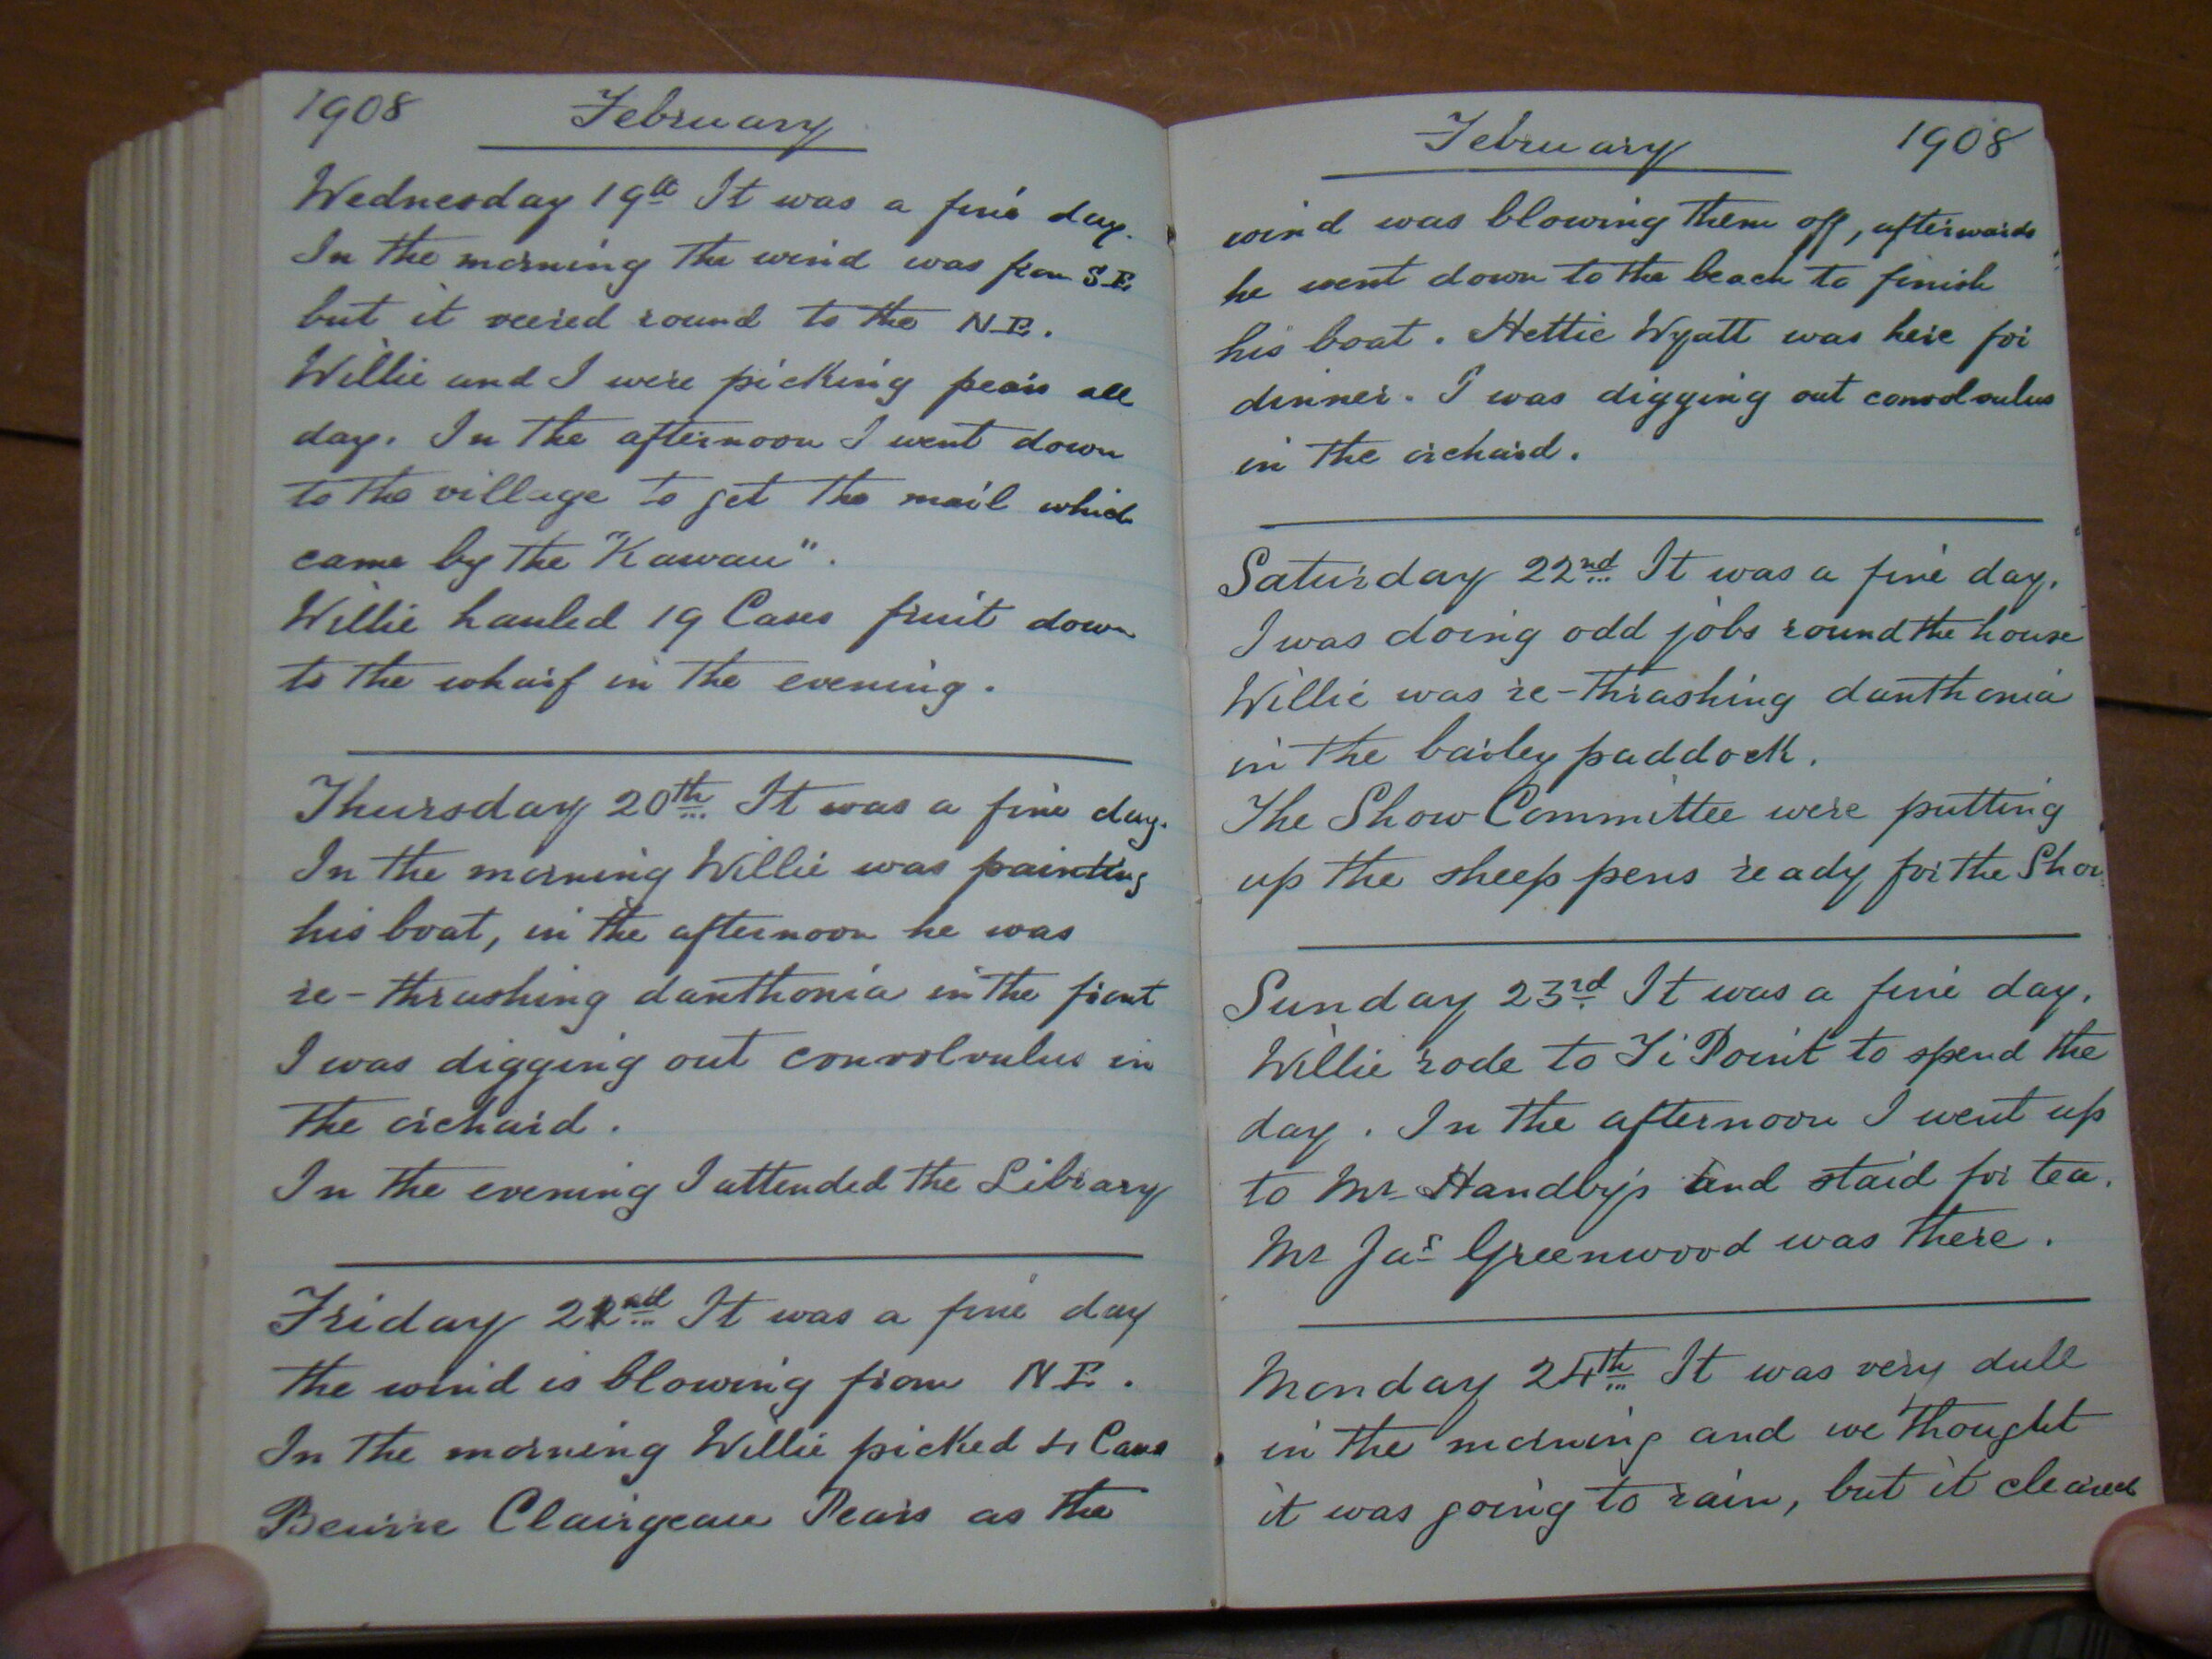 1908 February
Wednesday 19th It was a fine day.
In the morning the wind was from S.E.
but it veered round to the N.E.
Willie and I were picking pears all
day. In the afternoon I went down
to the village to get the mail which
came by the "Kawau".
Willie hauled 19 Cases fruit down
to the wharf in the evening.
Thursday 20th It was a fine day.
In the morning Willie was painting
his boat, in the afternoon he was
re-thrashing danthonia in the front
I was digging out convolvulus in
the orchard.
In the evening I attended the Library
Friday 21nd It was a fine day
the wind is blowing from N.E.
In the morning Willie picked 4 Cases
Beurre Clairgeau Pears as the
February 1908
wind was blowing them off, afterwards
he went down to the beach to finish
his boat. Hettie Wyatt was here for
dinner. I was digging out convolvulus
in the orchard.
Saturday 22nd It was a fine day.
I was doing odd jobs round the house
Willie was re-thrashing danthonia
in the barley paddock.
The Show Committee were putting
up the sheep pens ready for the Show
Sunday 23rd It was a fine day.
Willie rode to Ti Point to spend the
day. In the afternoon I went up
to Mr Handby's and staid for tea.
Mr Jas Greenwood was there.
Monday 24th It was very dull
in the morning and we thought
it was going to rain, but it cleared